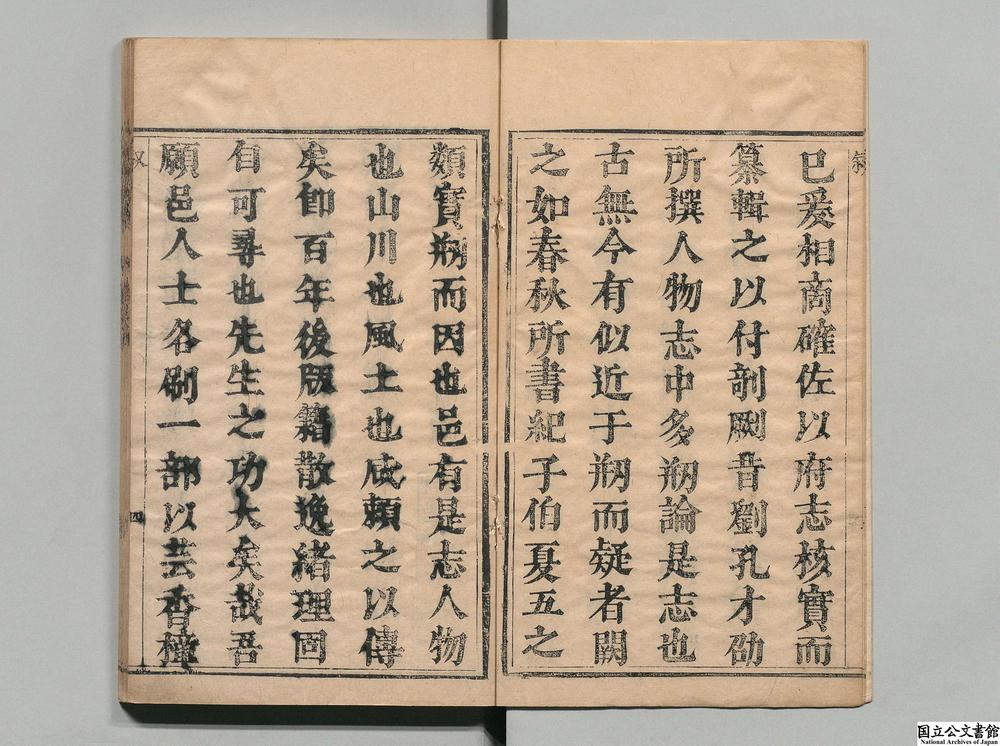 已爰相商確佐以府志核實而
纂輯之以付剞劂昔劉孔才劭
所撰人物志中多剏論是志也
古無今有似近于剏而疑者闕
之如春秋所書紀子伯夏五之
類實剏而因也邑有是志人物
也山川也風土也咸頼之以傳
矣卽百年後版籍散逸緒理固
自可尋也先生之功大矣哉吾
願邑人士各刷一部以芸香
四
国立公文書館
National Archives of Japan